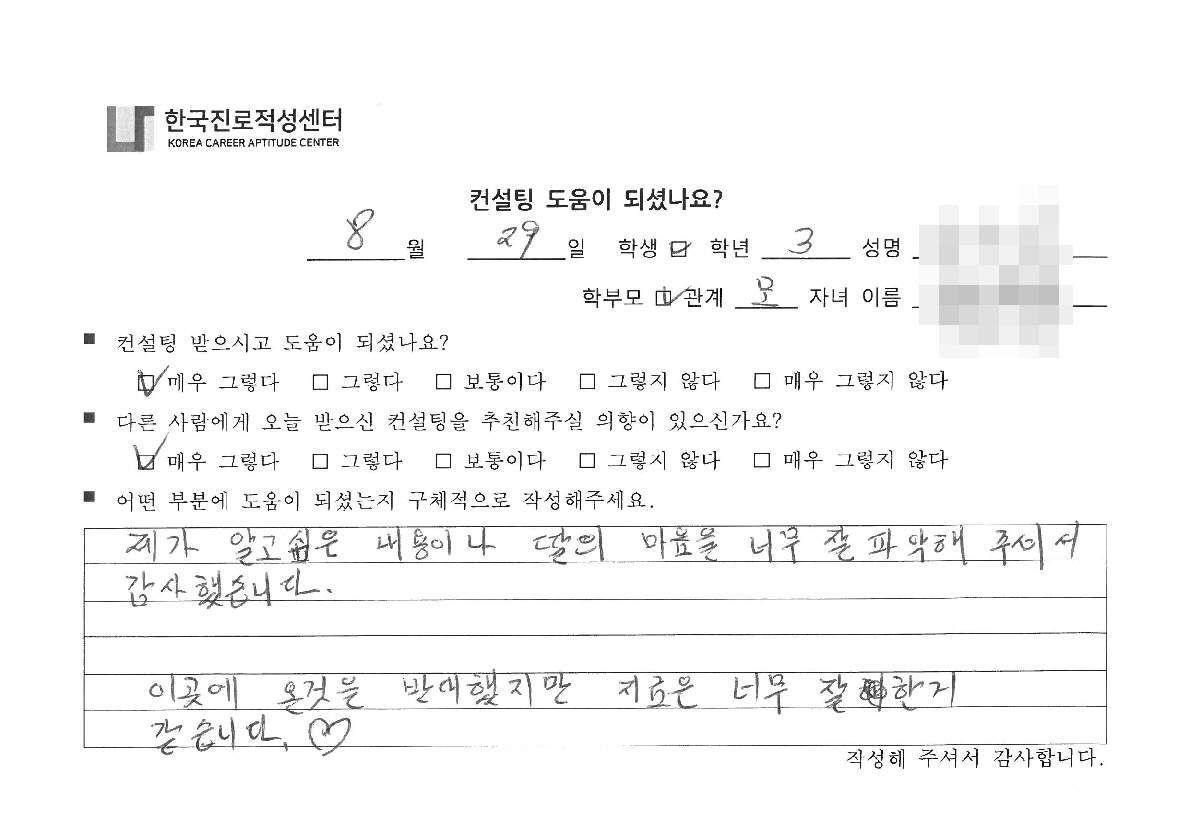 한국진로적성센터
KOREA CAREER APTITUDE CENTER
컨설팅 도움이 되셨나요?
8 월 29 일 학생 ☑ 학년 3 성명
학부모 ☑ 관계 모 자녀 이름
■ 컨설팅 받으시고 도움이 되셨나요?
☑ 매우 그렇다 □ 그렇다 □ 보통이다 □ 그렇지 않다 □ 매우 그렇지 않다
■ 다른 사람에게 오늘 받으신 컨설팅을 추친해주실 의향이 있으신가요?
☑ 매우 그렇다 □ 그렇다 □ 보통이다 □ 그렇지 않다 □ 매우 그렇지 않다
■ 어떤 부분에 도움이 되셨는지 구체적으로 작성해주세요.
제가 알고싶은 내용이나 딸의 마음을 너무 잘 파악해 주셔서
감사했습니다.
이곳에 온것을 반대했지만 지금은 너무 잘한거
같습니다. ♡
작성해 주셔서 감사합니다.